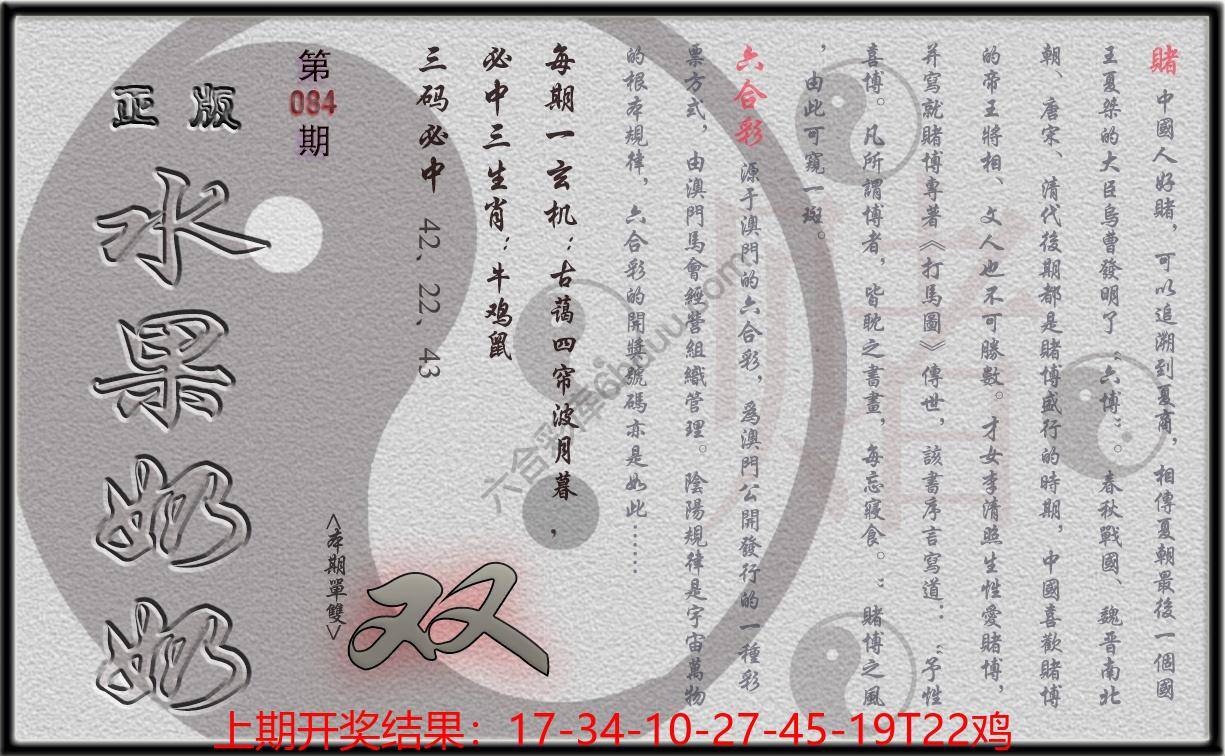 賭 中國人好賭，可以追溯到夏商，相傳夏朝最後一個國
王夏桀的大臣烏曹發明了“六博”。春秋戰國、魏晋南北
朝、唐宋、清代後期都是賭博盛行的時期，中國喜歡賭博
的帝王將相、文人也不可勝數。才女李清照生性愛賭博，
并寫就賭博專著《打馬圖》傳世，該書序言寫道：：“予性
喜博。凡所謂博者，皆耽之書畫，每忘寢食。”賭博之風
，由此可窺一斑。
六合彩 源于澳門的六合彩，爲澳門公開發行的一種彩
票方式，由澳門馬會經營組織管理。陰陽規律是宇宙萬物
的根本規律，六合彩的開獎號碼亦是如此……
每期一玄机：古藹四帘波月暮，
必中三生肖：牛鸡鼠
三码必中 42、22、43
第
084
期
正版
水果奶奶
<本期單雙>
双
賭
六合彩库6huuu.com
上期开奖结果：17-34-10-27-45-19T22鸡